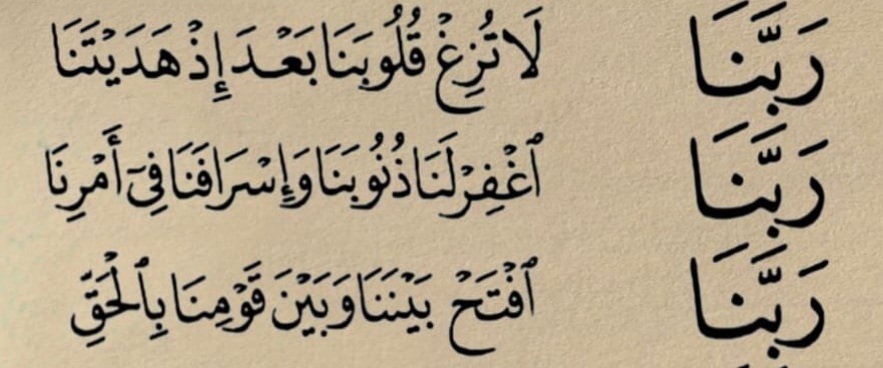 رَبَّنَا لَا تُزِغْ قُلُوبَنَا بَعْدَ إِذْ هَدَيْتَنَا
رَبَّنَا ٱغْفِرْ لَنَا ذُنُوبَنَا وَإِسْرَافَنَا فِىٓ أَمْرِنَا
رَبَّنَا ٱفْتَحْ بَيْنَنَا وَبَيْنَ قَوْمِنَا بِٱلْحَقِّ